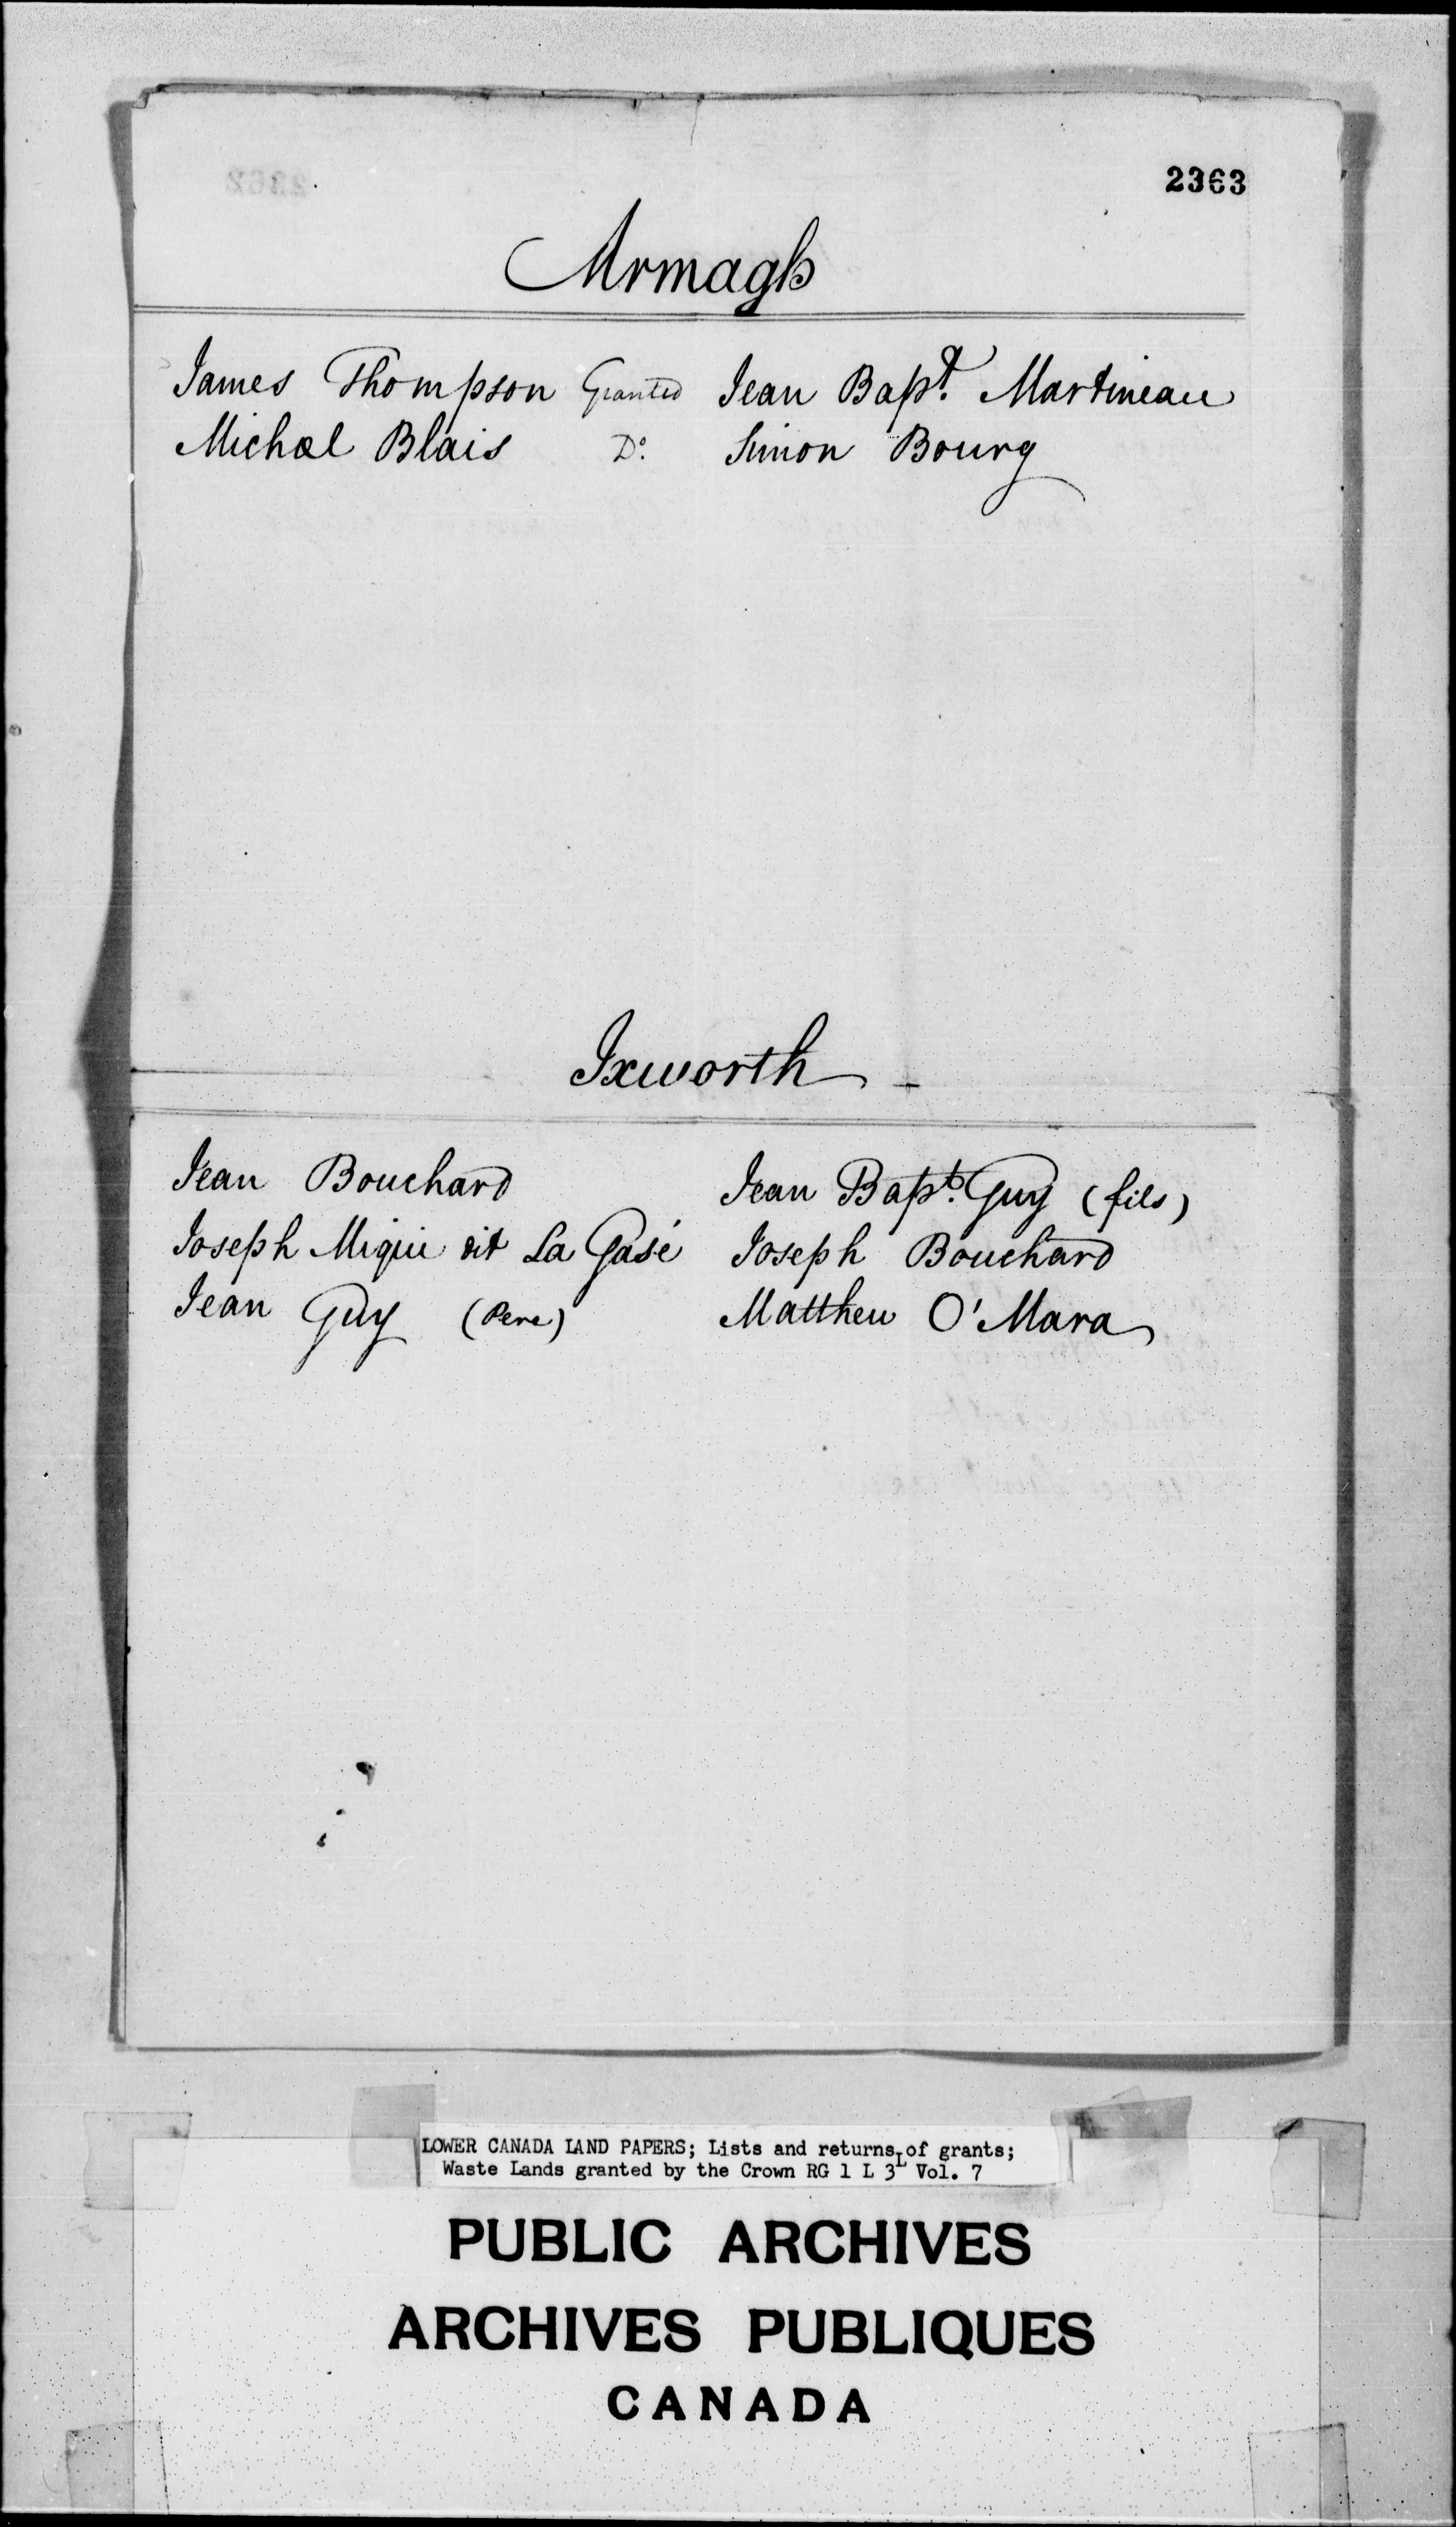 2363
Armagh
James Thompson Granted Jean Bapt. Martineau
Michael Blais Do. Simon Bourg
Ixworth
Jean Bouchard Jean Bapt. Guy (fils)
Joseph Miqui dit La Gasé Joseph Bouchard
Jean Guy (Pere) Matthew O'Mara
LOWER CANADA LAND PAPERS; Lists and returns of grants;
Waste Lands granted by the Crown RG 1 L 3L Vol. 7
PUBLIC ARCHIVES
ARCHIVES PUBLIQUES
CANADA